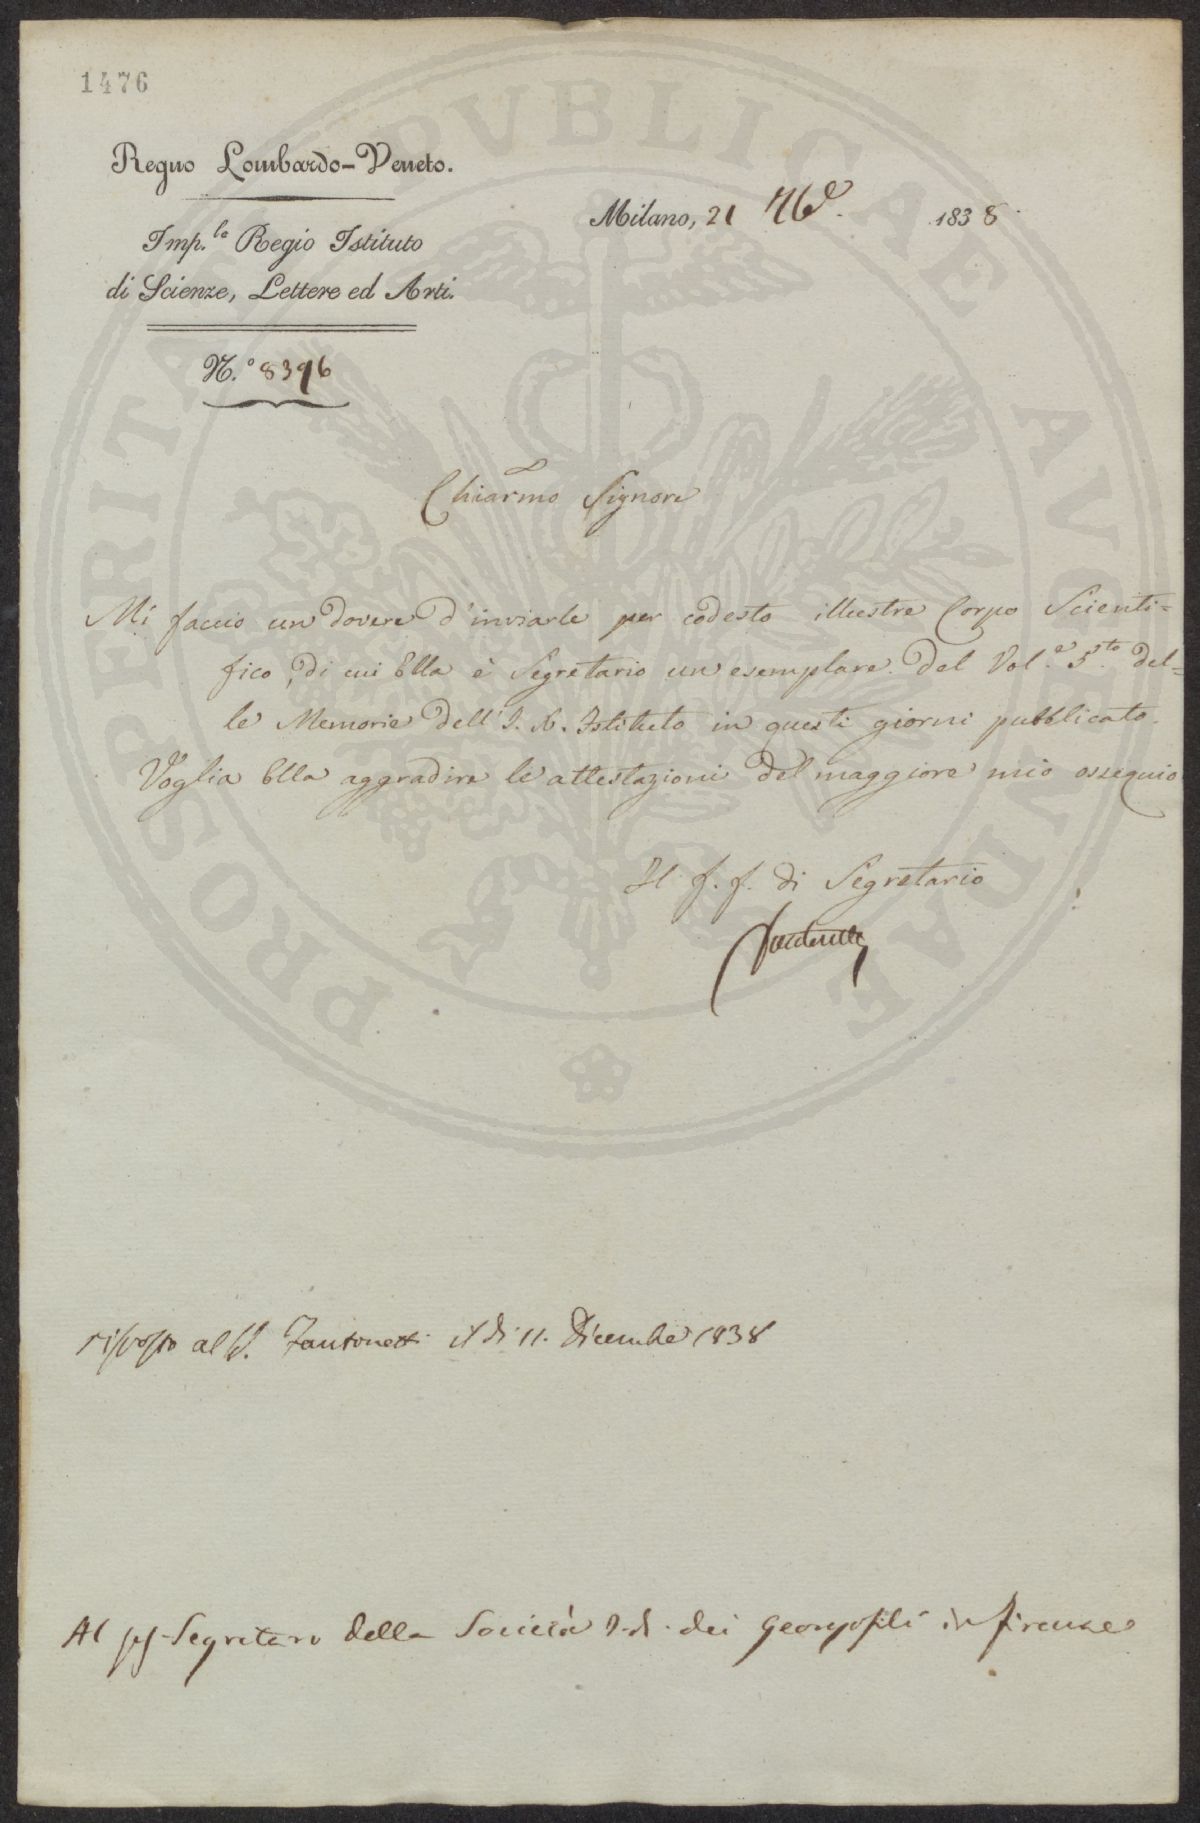 1476
Regno Lombardo-Veneto.
Imp.le Regio Istituto
di Scienze, Lettere ed Arti.
N.° 8396
Milano, 21 9be. 1838
Chiarmo Signore
Mi faccio un dovere d'inviarle per codesto illustre Corpo Scienti=
fico, di cui Ella è Segretario un esemplare del Vol.e 5.to del=
le Memorie dell'I. R. Istituto in questi giorni pubblicato.
Voglia Ella aggradire le attestazioni del maggiore mio ossequio
Il f. f. di Segretario
risposto al S. Fantonetti il dì 11. Dicembre 1838
Al Segretario della Società I. R. dei Georgofili in Firenze
PROSPERITATI PVBLICAE AVGENDAE